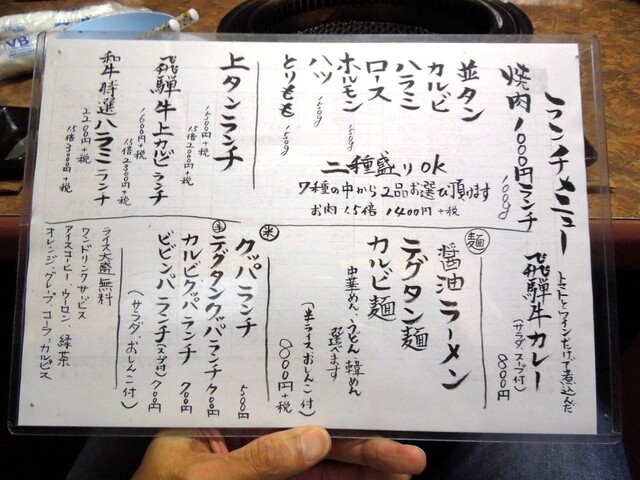 ランチメニュー
焼肉1000円ランチ
100g
並タン
カルビ
ハラミ
ロース
ホルモン 150g
ハツ 150g
とりもも 150g
二種盛りOK
7種の中から2品お選び頂けます
お肉1.5倍 1400円+税
上タンランチ
1500円+税
1.5倍 2000円+税
飛騨牛上カルビランチ
1600円+税
1.5倍 2200円+税
和牛特選ハラミランチ
2200円+税
1.5倍 3000円+税
トマトとワインだけで煮込んだ
飛騨牛カレー
(サラダ スープ付)
800円
麺
醤油ラーメン
テグタン麺
カルビ麺
中華めん、うどん、韓めん
選べます
(半ライスおしんこ付)
800円+税
米
クッパランチ 500円
辛 テグタンクッパランチ 700円
カルビクッパランチ 700円
ビビンバランチ(スープ付) 700円
(サラダ、おしんこ付)
ライス大盛無料
ワンドリンクサービス
アイスコーヒー、ウーロン、緑茶
オレンジ、グレープ、コーラ、カルピス